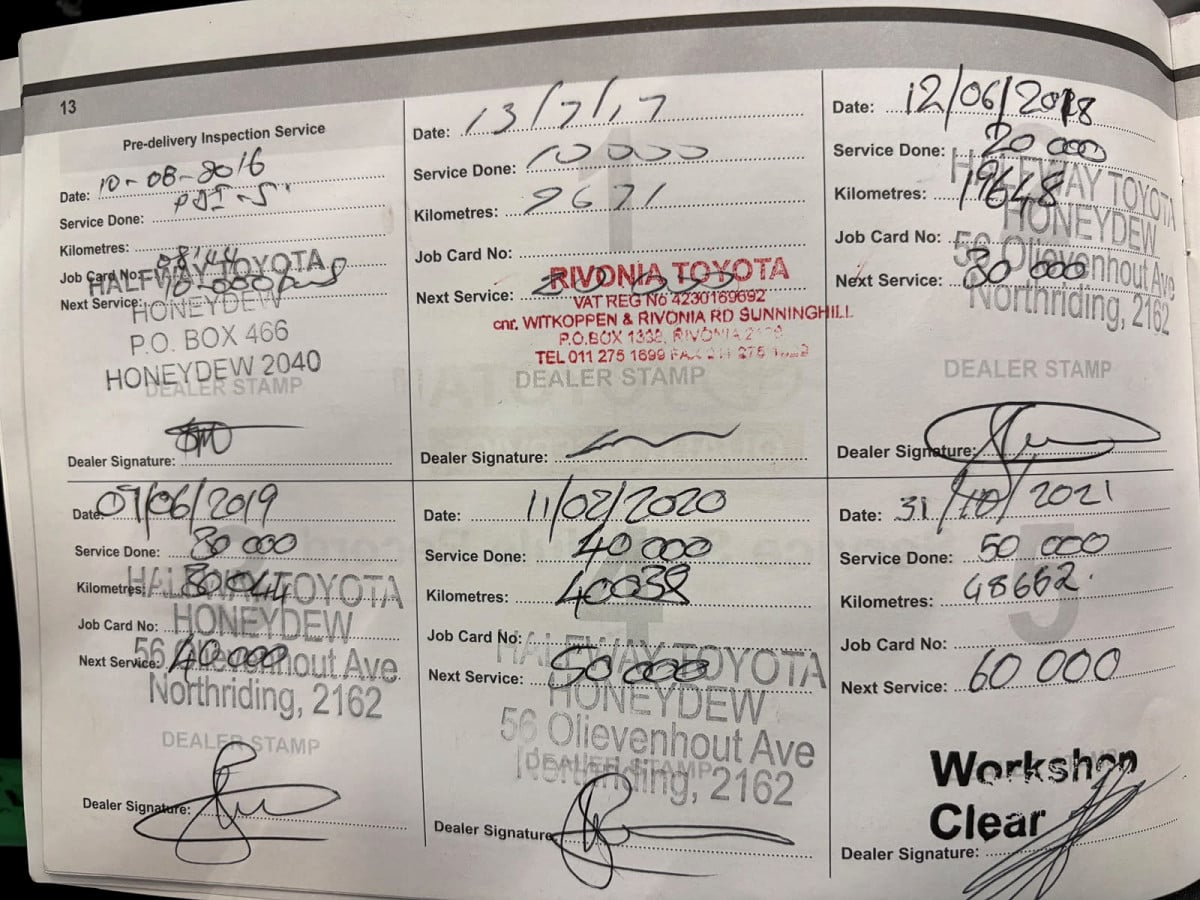 13
Pre-delivery Inspection Service
Date: 10-08-2016
Service Done: PDI-S
Kilometres:
Job Card No: 08144
Next Service: 10-000
HALFWAY TOYOTA
HONEYDEW
P.O. BOX 466
HONEYDEW 2040
DEALER STAMP
Dealer Signature:
1
Date: 13/7/17
Service Done: 10 000
Kilometres: 9671
Job Card No:
Next Service:
RIVONIA TOYOTA
VAT REG No 4230169692
cnr. WITKOPPEN & RIVONIA RD SUNNINGHILL
P.O.BOX 1332, RIVONIA
TEL 011 275 1699 FAX 011 275
DEALER STAMP
Dealer Signature:
Date: 12/06/2018
Service Done: 20 000
Kilometres: 19648
Job Card No:
Next Service: 30 000
HALFWAY TOYOTA
HONEYDEW
56 Olievenhout Ave
Northriding, 2162
DEALER STAMP
Dealer Signature:
Date: 07/06/2019
Service Done: 30 000
Kilometres: 30044
Job Card No:
Next Service: 40 000
HALFWAY TOYOTA
HONEYDEW
56 Olievenhout Ave
Northriding, 2162
DEALER STAMP
Dealer Signature:
4
Date: 11/02/2020
Service Done: 40 000
Kilometres: 40038
Job Card No:
Next Service: 50 000
HALFWAY TOYOTA
HONEYDEW
56 Olievenhout Ave
Northriding, 2162
DEALER STAMP
Dealer Signature
5
Date: 31/10/2021
Service Done: 50 000
Kilometres: 48662.
Job Card No:
Next Service: 60 000
Workshop
Clear
Dealer Signature: